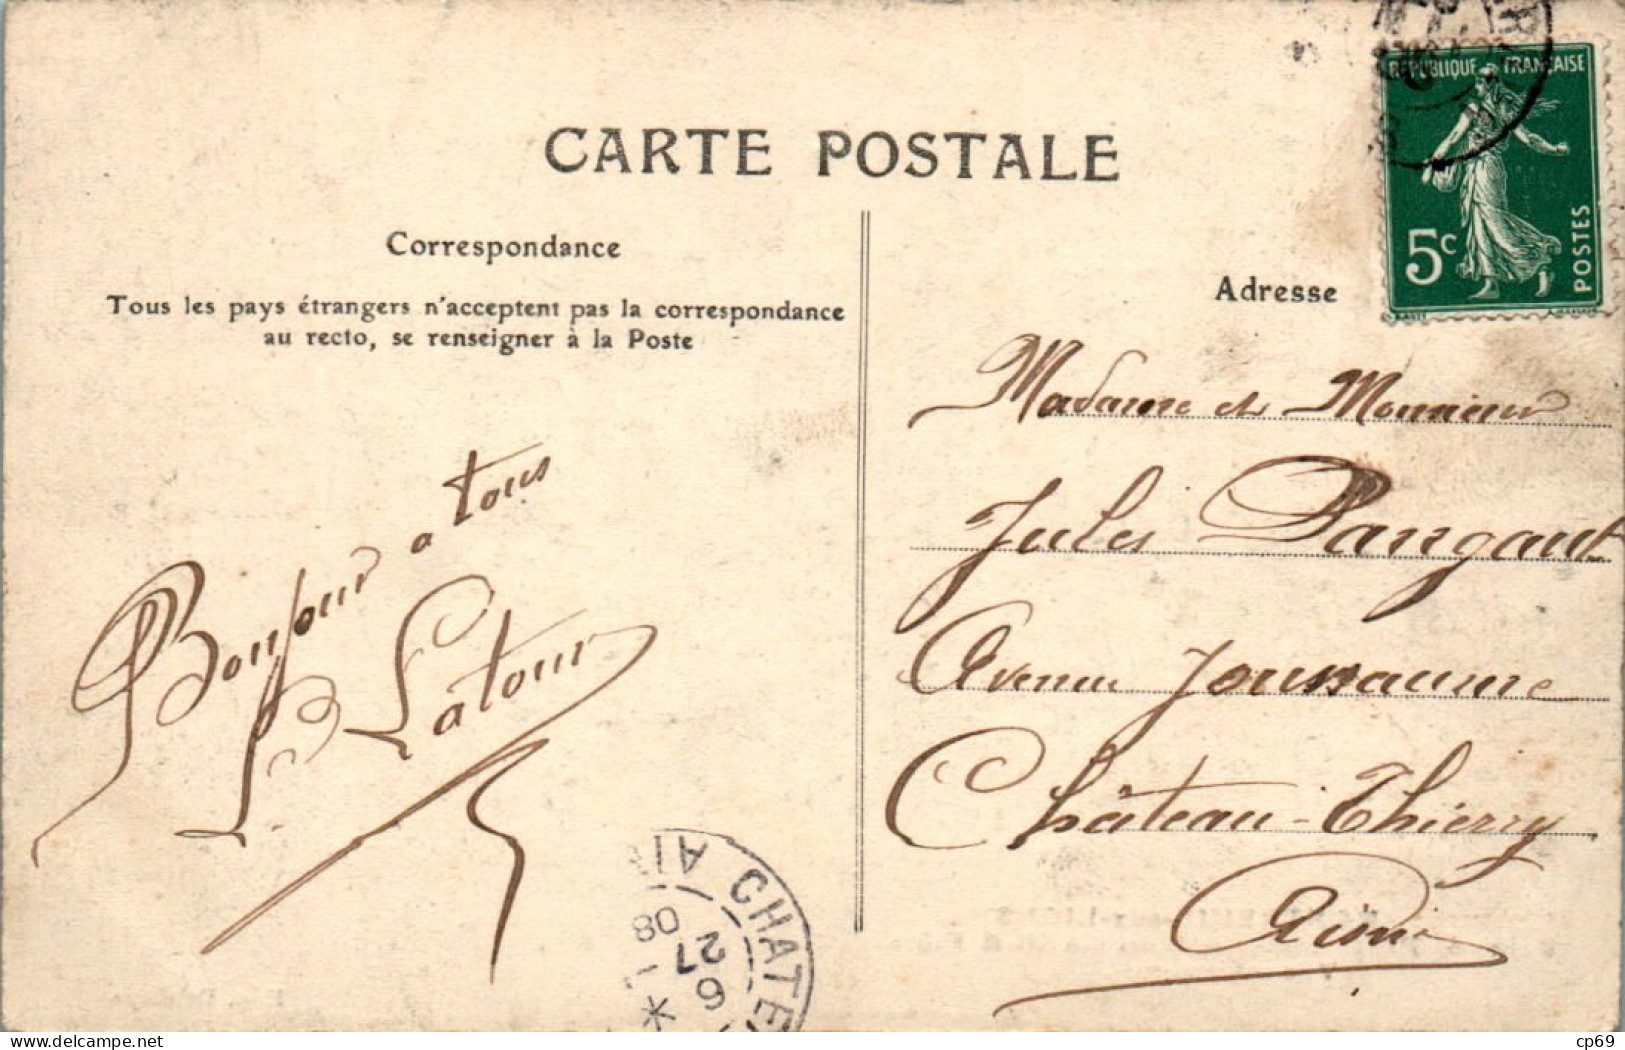 CARTE POSTALE
Correspondance
Tous les pays étrangers n'acceptent pas la correspondance
au recto, se renseigner à la Poste
Bonjour a tous
Latour
RÉPUBLIQUE FRANÇAISE
5c
POSTES
Adresse
Madame et Monsieur
Jules Dangaut
Avenue Joussaume
Château-Thierry
Aisne
CHATE
AIS
6
27
08
delcampe.net
cp69